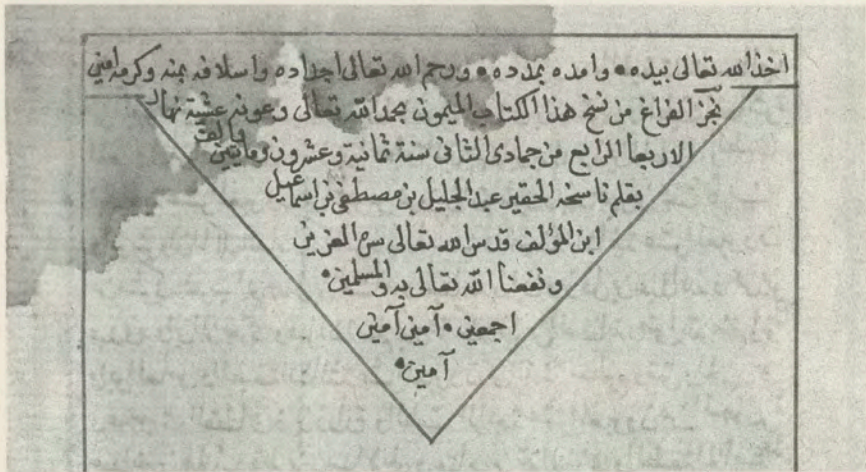 اخذ الله تعالى بيده • وامده بمدده • ورحم الله تعالى اجداده واسلافه بمنه وكرمه امين
نجز الفراغ من نسخ هذا الكتاب الميمون بحمد الله تعالى وعونه عشية نهار
الاربعا الرابع من جمادى الثانى سنة ثمانية وعشرون ومايتين والف
بقلم ناسخه الحقير عبد الجليل بن مصطفى بن اسماعيل
ابن المؤلف قدس الله تعالى سره العزيز
ونفعنا الله تعالى به والمسلمين •
اجمعين • آمين آمين
آمين •